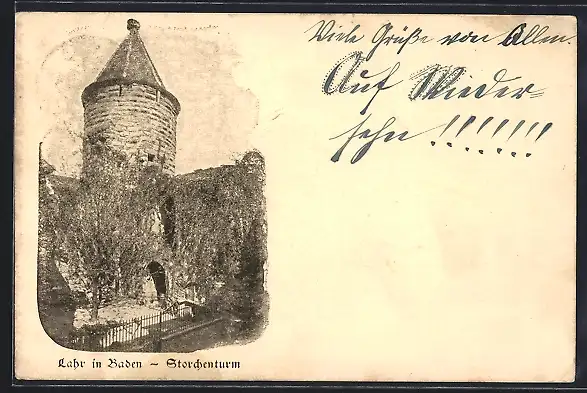 Viele Grüße von Allen.
Auf Wieder=
sehn!!!!!!!
Lahr in Baden ~ Storchenturm